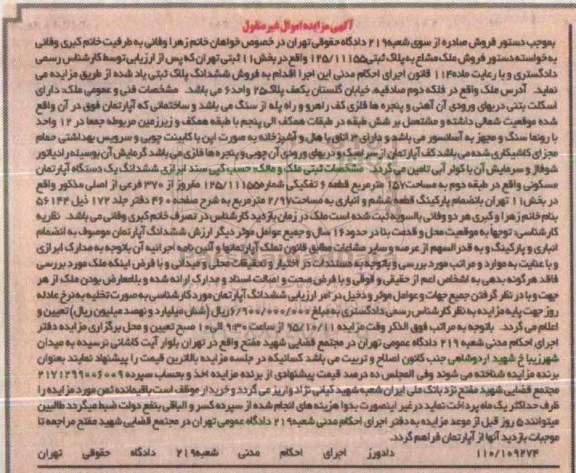 آگهی مزایده اموال غیر منقول
بموجب دستور فروش صادره از سوی شعبه ۲۱۹ دادگاه حقوقی تهران در خصوص خواهان خانم زهرا وفائی به طرفیت خانم کبری وفائی
به خواسته دستور فروش ملک مشاع به پلاک ثبتی ۱۲۵/۱۱۱۵۵ واقع در بخش ۱۱ ثبتی تهران که پس از ارزیابی توسط کارشناس رسمی
دادگستری و با رعایت ماده ۱۱۴ قانون اجرای احکام مدنی این اجرا اقدام به فروش ششدانگ پلاک ثبتی یاد شده از طریق مزایده می
نماید. آدرس ملک واقع در فلکه دوم صادقیه، خیابان گلستان یکم، پلاک ۲۵ واحد ۶ می باشد. مشخصات فنی و عمومی ملک: دارای
اسکلت بتنی دربهای ورودی آن آهنی و پنجره ها فلزی کف راهرو و راه پله از سنگ می باشد و ساختمانی که آپارتمان فوق در آن واقع
شده موقعیت شمالی داشته و مشتمل بر شش طبقه در طبقات همکف الی پنجم با طبقه همکف و زیرزمین مربوطه جمعا در ۱۲ واحد
با رونما سنگ و مجهز به آسانسور می باشد و دارای ۳ اتاق با هال و آشپزخانه به صورت اپن با کابینت چوبی و سرویس بهداشتی حمام
مجزای کاشیکاری شده می باشد کف آپارتمان از سرامیک و دربهای ورودی آن چوبی و پنجره ها فلزی می باشد گرمایش آن بوسیله رادیاتور
شوفاژ و سرمایش آن با کولر آبی تامین می گردد. مشخصات ثبتی ملک و مالک: حسب کپی سند ابرازی ششدانگ یک دستگاه آپارتمان
مسکونی واقع در طبقه دوم به مساحت ۱۵۷ مترمربع قطعه ۶ تفکیکی شماره ۱۲۵/۱۱۱۵۵ مفروز از ۳۷۰ فرعی از اصلی مذکور واقع
در بخش ۱۱ تهران بانضمام پارکینگ قطعه ششم و انباری به مساحت ۲/۹۷ مترمربع به شرح صفحه ۴۶۰ دفتر جلد ۱۷۲ ذیل ۵۶۱۴۴
بنام خانم زهرا و کبری هر دو وفائی بالسویه ثبت شده است ملک در زمان بازدید کارشناس در تصرف خانم کبری وفائی می باشد. نظریه
کارشناسی: توجها به موقعیت محل و قدمت بنا در حدود ۱۶ سال و جمیع عوامل موثر دیگر ارزش ششدانگ آپارتمان موصوف به انضمام
انباری و پارکینگ و به قدرالسهم از عرصه و سایر مشاعات مطابق قانون تملک آپارتمانها و آئین نامه اجرائیه آن باتوجه به مدارک ابرازی
و با عنایت به موارد و مراتب مورد بررسی و باتوجه به مستندات در اختیار و تحقیقات محلی و میدانی و با فرض اینکه ملک مورد بررسی
فاقد هرگونه بدهی به اشخاص اعم از حقیقی و حقوقی و با فرض صحت و اصالت اسناد و مدارک ارائه شده و بلامعارض بودن ملک از هر
جهت و با در نظر گرفتن جمیع جهات و عوامل موثر و دخیل در امر ارزیابی ششدانگ آپارتمان مورد کارشناسی به صورت تخلیه به نرخ عادله
روز جهت پایه مزایده به نظر کارشناس رسمی دادگستری به مبلغ ۶/۹۰۰/۰۰۰/۰۰۰ ریال (شش میلیارد و نهصد میلیون ریال) تعیین و
اعلام می گردد. باتوجه به مراتب فوق الذکر وقت مزایده ۹۵/۱۰/۱۱ از ساعت ۹:۳۰ الی ۱۰ صبح تعیین و محل برگزاری مزایده دفتر
اجرای احکام مدنی شعبه ۲۱۹ دادگاه عمومی تهران در مجتمع قضایی شهید مفتح واقع در تهران بلوار آیت کاشانی نرسیده به میدان
شهر زیبا خ شهید اردوشاهی جنب کانون اصلاح و تربیت می باشد کسانیکه در جلسه مزایده بالاترین قیمت را پیشنهاد نمایند بعنوان
برنده مزایده شناخته می شوند وفی المجلس ده درصد قیمت پیشنهادی از برنده مزایده اخذ و بحساب سپرده ۲۱۷۱۲۹۹۰۰۶۰۰۹
مجتمع قضایی شهید مفتح نزد بانک ملی ایران شعبه شهید کیانی نژاد واریز می گردد و خریدار موظف است باقیمانده ثمن مورد مزایده را
ظرف حداکثر یک ماه پرداخت نماید در غیر اینصورت بدوا هزینه های انجام شده از سپرده کسر و الباقی بنفع دولت ضبط میگردد طالبین
میتوانند ۵ روز قبل از موعد مزایده به دفتر اجرای احکام مدنی شعبه ۲۱۹ دادگاه عمومی تهران در مجتمع قضایی شهید مفتح مراجعه تا
موجبات بازدید آنها از آپارتمان فراهم گردد.
۱۱۰/۱۰۹۲۷۴ دادورز اجرای احکام مدنی شعبه ۲۱۹ دادگاه حقوقی تهران